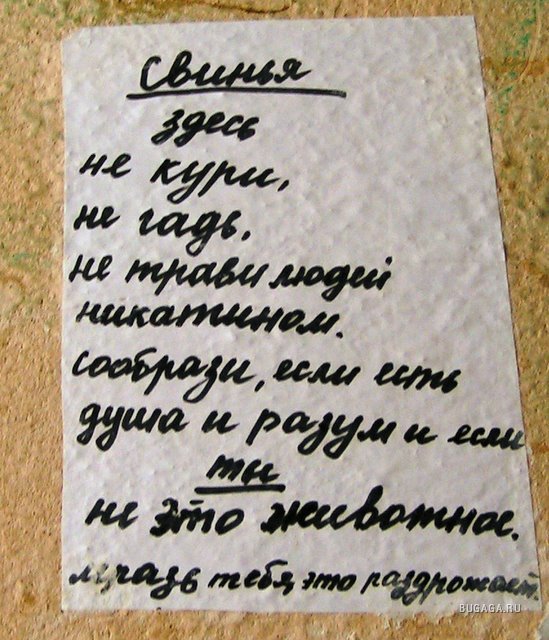 Свинья
здесь
не кури,
не гадь,
не трави людей
никатином.
сообрази, если есть
душа и разум и если
ты
не это животное.
мразь тебя, это раздрожает.
BUGAGA.RU